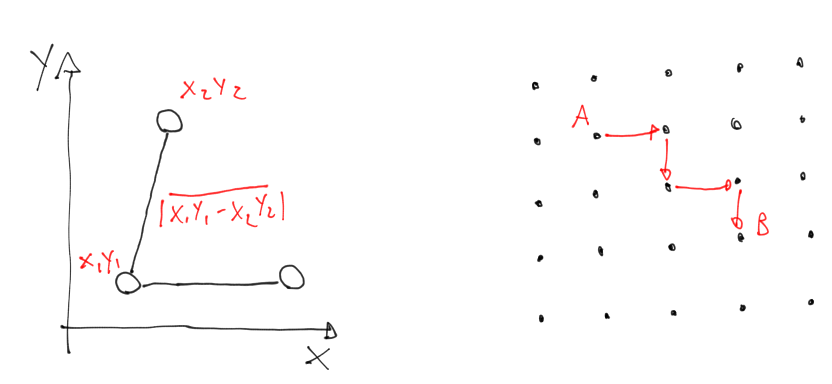 Y
X₂Y₂
|X₁Y₁-X₂Y₂|
X₁Y₁
X
A
B